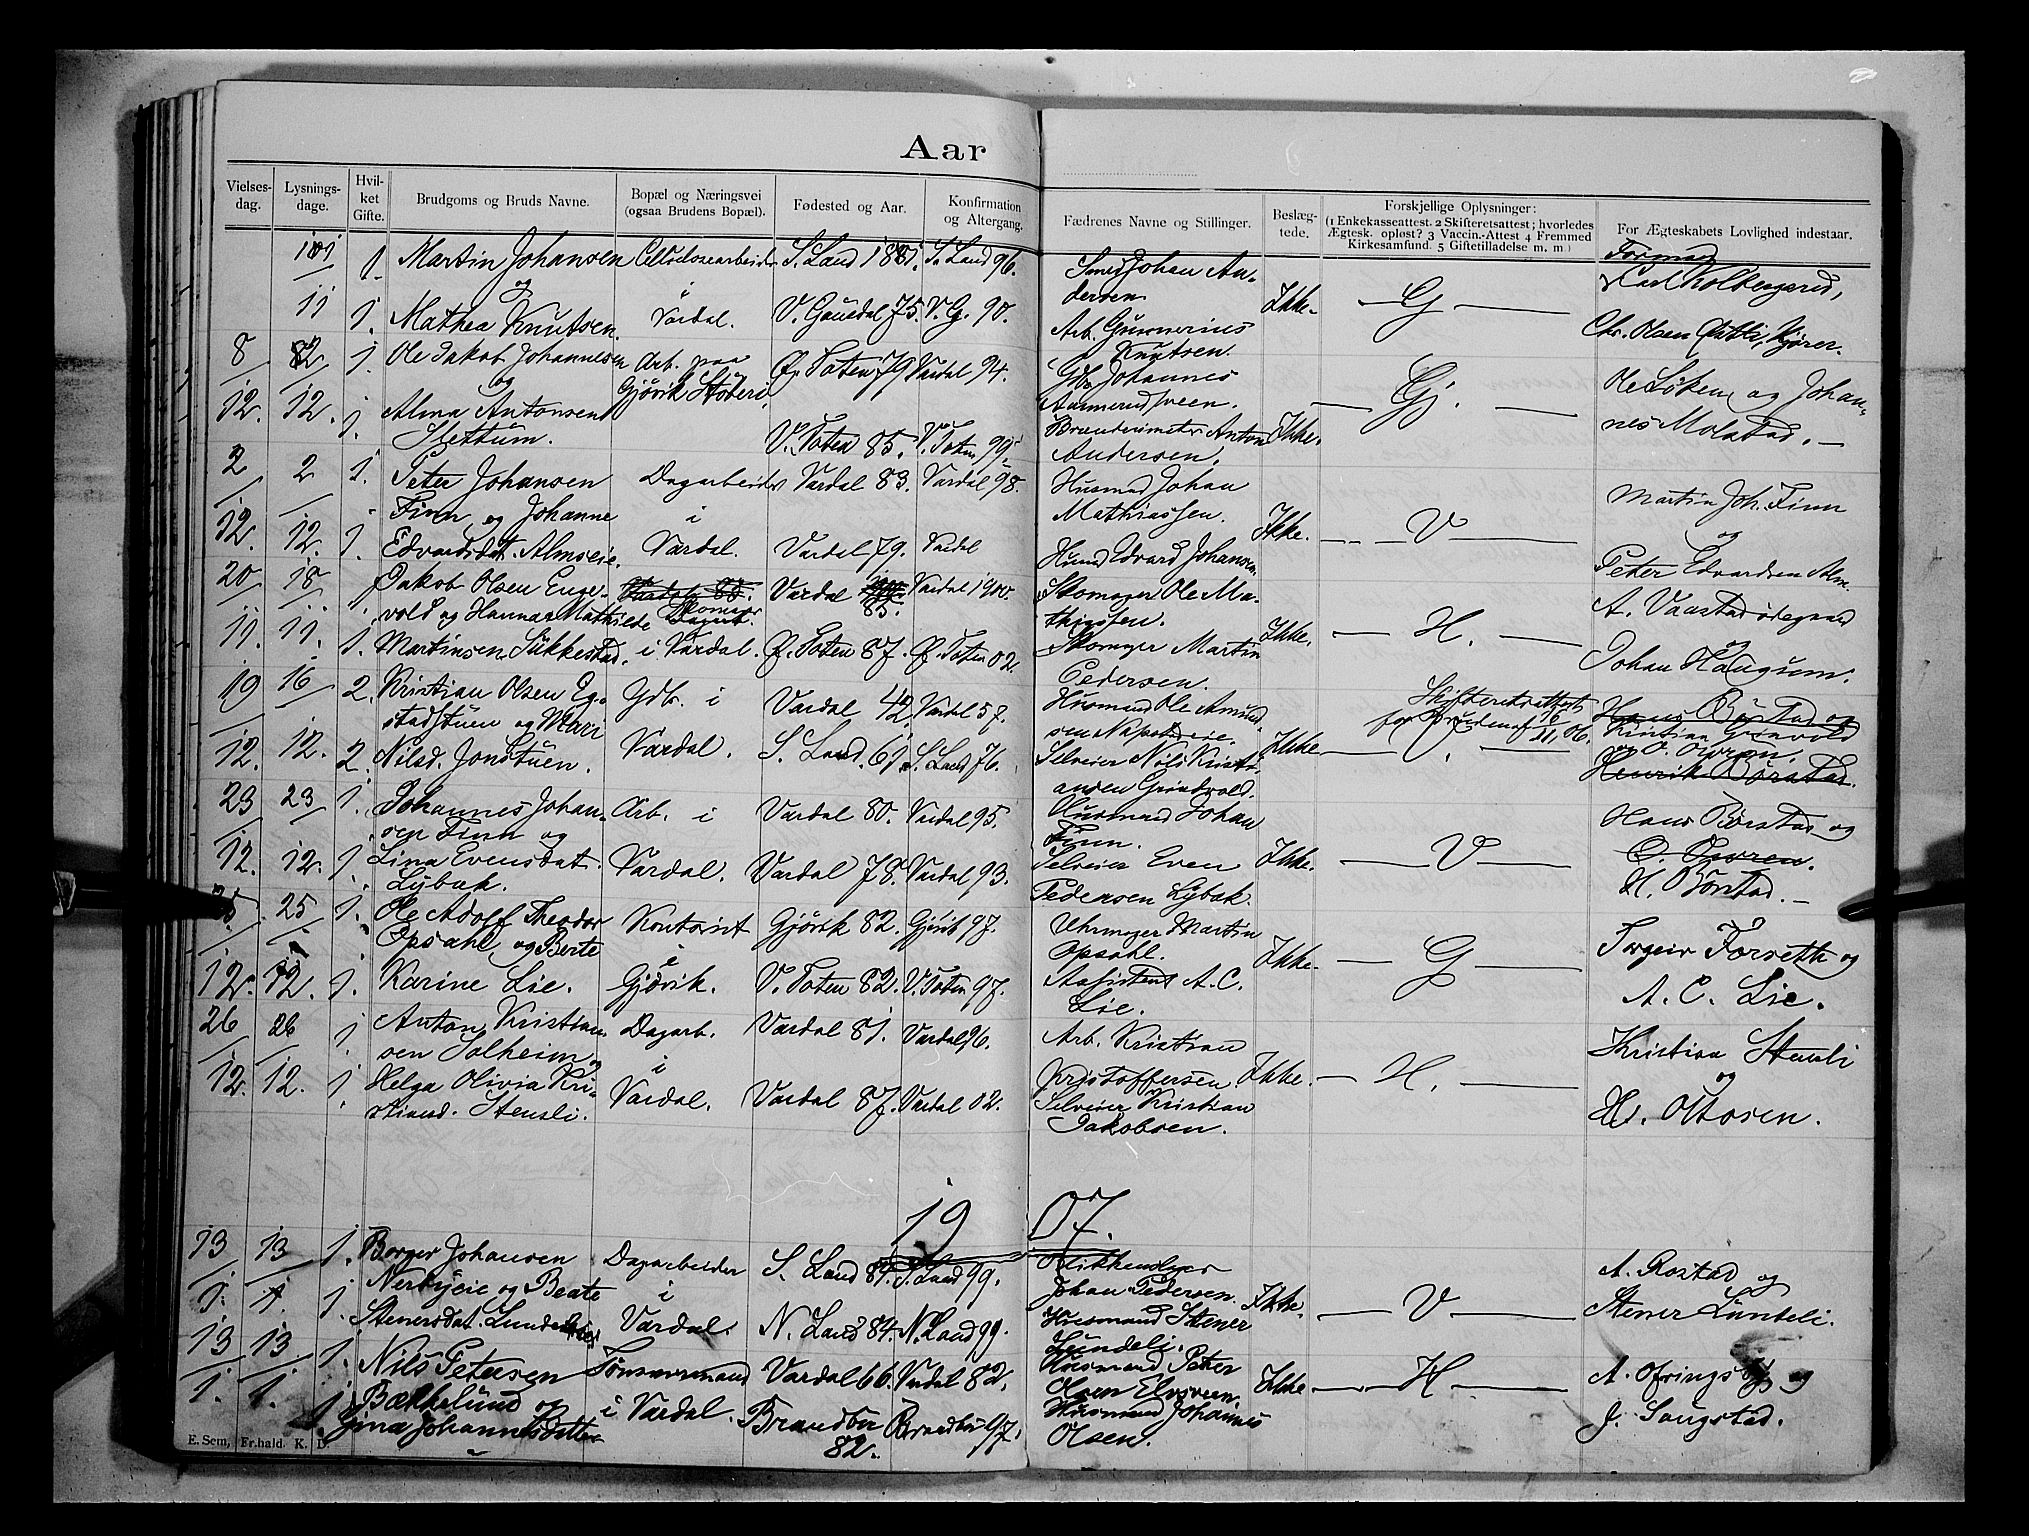 Aar
Vielses-dag. Lysnings-dage. Hvil-ket Gifte. Brudgoms og Bruds Navne. Bopæl og Næringsvei (ogsaa Brudens Bopæl). Fødested og Aar. Konfirmation og Altergang. Fædrenes Navne og Stillinger. Beslæg-tede. Forskjellige Oplysninger: (1 Enkekasseattest. 2 Skifteretsattest; hvorledes Ægtesk. opløst? 3 Vaccin.-Attest 4 Fremmed Kirkesamfund. 5 Giftetilladelse m. m.) For Ægteskabets Lovlighed indestaar.
1. Martin Johansen S. Land S. Land 96. Smed Johan An-
og i dersen
11 1. Mathea Knutsen. Vardal. V. Gausdal 75. V. G. 90. Arb. Gunnerius Ikke. G Chr. Olsen
Knutsen.
8 1. Ole Jakob Johannesen Arb. paa Ø. Toten 79 Vardal 94. Gbr. Johannes
og Gjøvik
12. 12. 1. Alma Antonsen Gj. Ole og Johan-
V. Toten 85. V. Toten 99. Anton Ikke. nes Molstad.
Andersen.
2 2 1. Peter Johansen Dagarbeider Vardal 83. Vardal 98. Husmand Johan
Finn og Johanne i Mathiassen. Martin Joh. Finn
12. 12. 1. Edvardsdat. Almseie. Vardal. Vardal 79. Vardal Husmd Edvard Johansen Ikke. V og
Peter Edvardsen Alm
20 18 1. Jakob Olsen Enge- Vardal 85. Vardal 1900. Skomager Ole Ma-
vold og Hanna Mathilde Skomager thiassen. A. Vaastad
11 11. 1. Martinsen Sukkestad. i Vardal. Ø. Toten 87. Ø. Toten 02. Skomager Martin Ikke. H. og
Pedersen. Johan Haugum.
19 16 2. Kristian Olsen Eg- Gdbr. i Vardal 42. Vardal 57. Husmand Ole Amund Skifteretsattest
stadstuen og Mari sen for Bruden af Hans Børstad og
12. 12. 2. Nilsd. Jonstuen. Vardal. S. Land. 61. S. Land 76. Selveier Nils Kristi- Ikke V.
ansen Grindvold. Henrik Børstad.
23 23 1. Johannes Johan- Arb. i Vardal 80. Vardal 95. Husmand Johan
sen Finn og Finn. Hans Børstad og
12. 12. 1. Lina Evensdat. Vardal. Vardal 78. Vardal 93. Selveier Even Ikke. V
Lybæk. Pedersen Lybæk. H. Børstad.
25 25 1. Ole Adolf Theodor Kontorist Gjøvik 82. Gjøvik 97. Uhrmager Martin
Opsahl og Berte i Opsahl. Torgeir Forseth og
12. 12. 1. Karine Lie. Gjøvik. V. Toten 82. V. Toten 97. Assistent A. C. Ikke. G A. C. Lie.
Lie.
26 26 1. Anton Kristian- Dagarb. Vardal 81. Vardal 96. Arb. Kristian
sen Solheim og i Kristoffersen. Kristian Stensli
12. 12. 1. Helga Olivia Kri- Vardal. Vardal 87. Vardal 02. Selveier Kristian Ikke. H. og
stiansd. Stensli. Jakobsen. H. Ottosen.
19 07.
13 13 1. Borger Johansen Dagarbeider S. Land 84. S. Land 99.
Nerbyeie og Beate i Johan Pedersen. A. Rostad og
1. 1. 1. Stenersdat. Vardal. N. Land 84. N. Land 99. Husmand Stener Ikke. V Stener Lundeli.
Lundeli.
13 13 1. Nils Petersen Tømmermand Vardal 66. Vardal 82. Husmand Peter
Bækkelund og i Vardal. Olsen Elvsveen. Ikke H A. og
1. 1. 1. Gina Johannesdatter Brandbu 82. Brandbu 97. Husmand Johannes J. Saugstad.
Olsen.
E. Sem, Fr.hald. K. D.